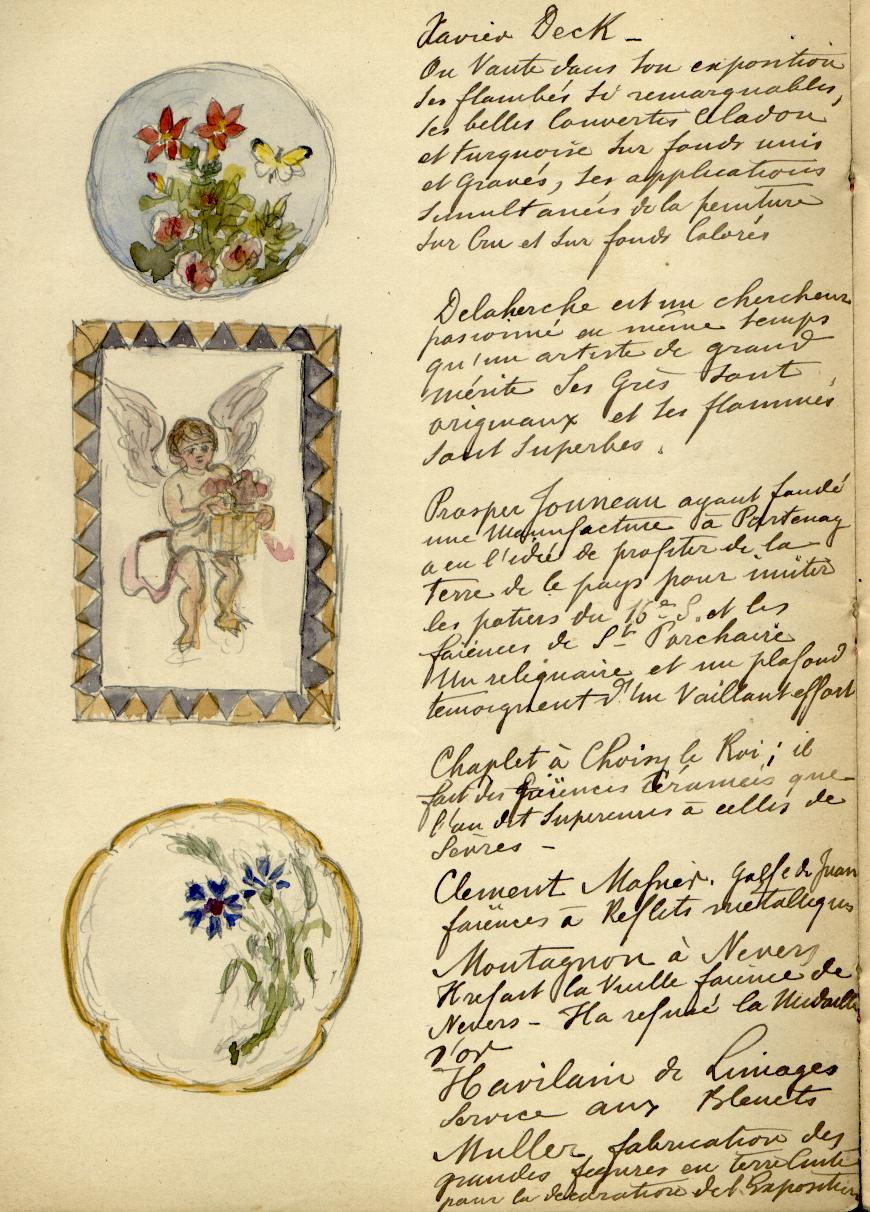 Xavier Deck –
On Vante dans son exposition
ses flambés si remarquables,
ses belles Couvertes Celadon
et turquoise sur fonds unis
et Gravés, ses applications
simultanées de la peinture
sur Cru et sur fonds Colorés
Delaherche est un chercheur
passionné en même temps
qu'un artiste de grand
mérite Ses Grès sont
originaux et ses flammés
sont superbes.
Prosper Jouneau ayant fondé
une Manufacture à Partenay
a eu l'idée de profiter de la
terre de le pays pour imiter
les potiers du 16e S. et les
faïences de St Porchaire
Un reliquaire et un plafond
temoignent d'un Vaillant effort
Chaplet à Choisy le Roi ; il
fait des faïences que
l'on dit Superieures à celles de
Sèvres –
Clement Massier. Golfe de Juan
faïences à Reflets métalliques
Montagnon à Nevers
Il refait la Vieille faïence de
Nevers – Il a refusé la Medaille
d'or
Havilain de Limoges
Service aux Bleuets
Muller fabrication des
grandes figures en terre Cuite
pour la décoration de l'Exposition